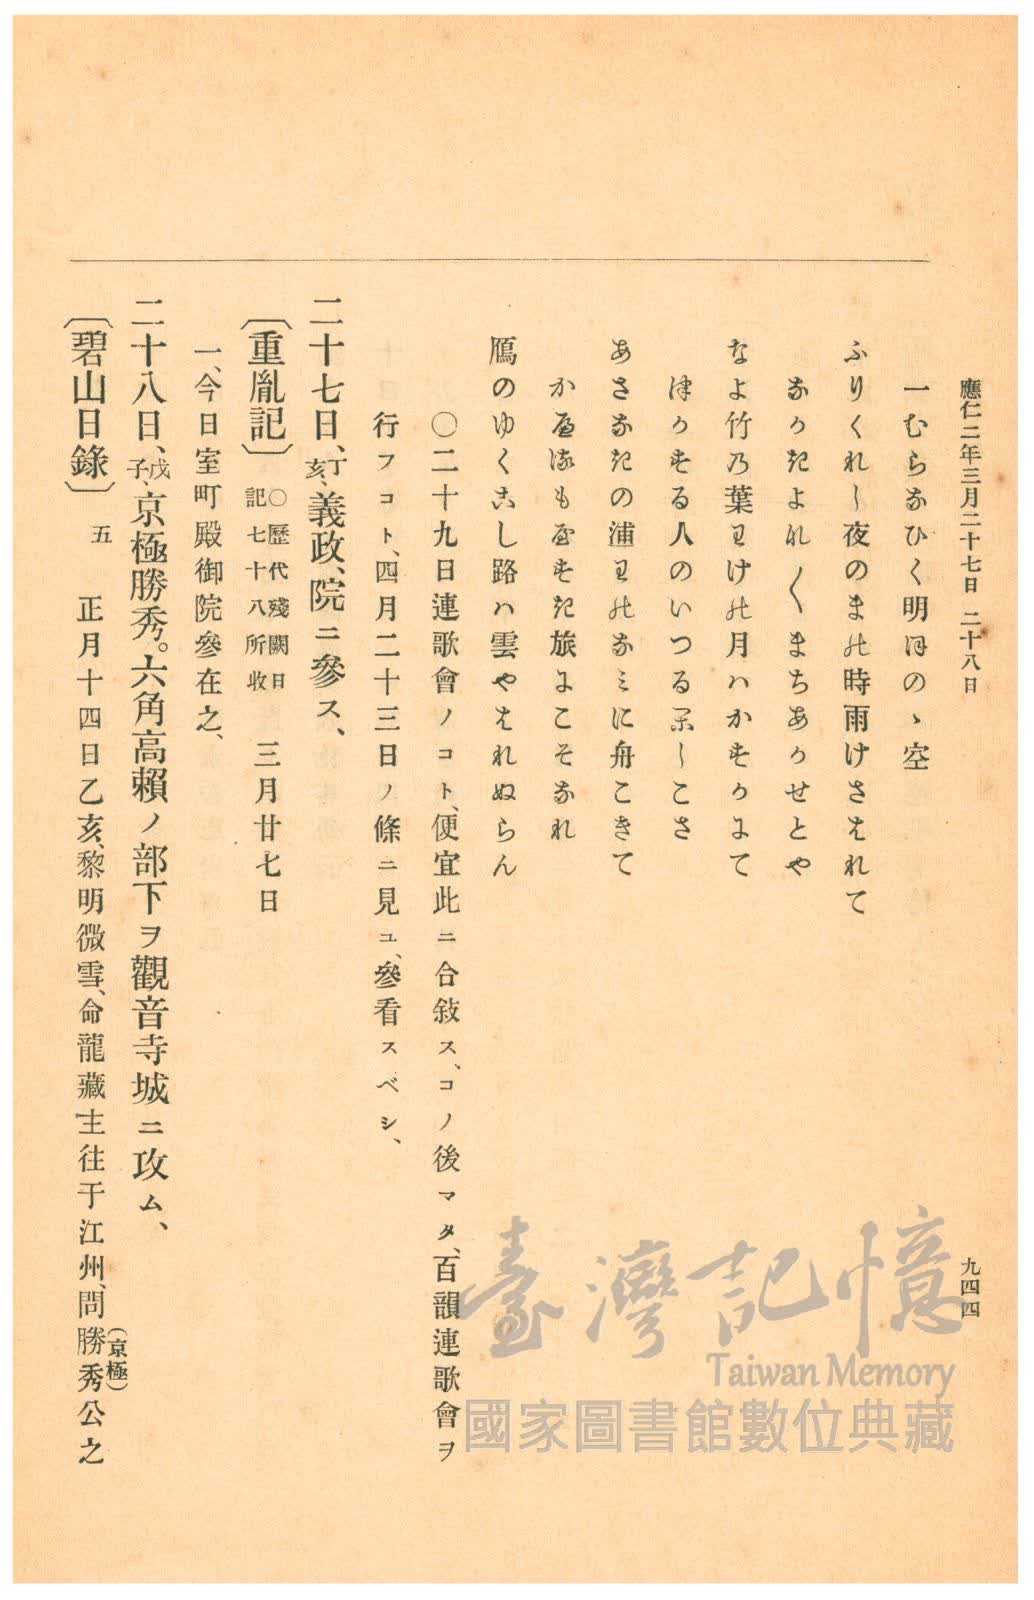 應仁二年三月二十七日 二十八日
九四四
一むらなひく明ほのゝ空
ふりくれし夜のまの時雨けさはれて
なかきよれ〳〵まちあかせとや
なよ竹乃葉わけの月ハかすかにて
つかする人のいつる閑しこさ
あさなきの浦わのなみに舟こきて
かへるもやすき旅にこそなれ
鴈のゆくこし路ハ雲やはれぬらん
〇二十九日連歌會ノコト、便宜此ニ合敍ス、コノ後マタ、百韻連歌會ヲ
行フコト、四月二十三日ノ條ニ見ユ、參看スベシ、
二十七日、丁亥、義政、院ニ參ス、
〔重胤記〕〇歷代殘闕日記七十八所收 三月廿七日
一、今日室町殿御院參在之、
二十八日、戊子、京極勝秀。六角高賴ノ部下ヲ觀音寺城ニ攻ム、
〔碧山日錄〕五 正月十四日乙亥、黎明微雪、命龍藏主往于江州、問勝秀公之
(京極)
臺灣記憶
Taiwan Memory
國家圖書館數位典藏